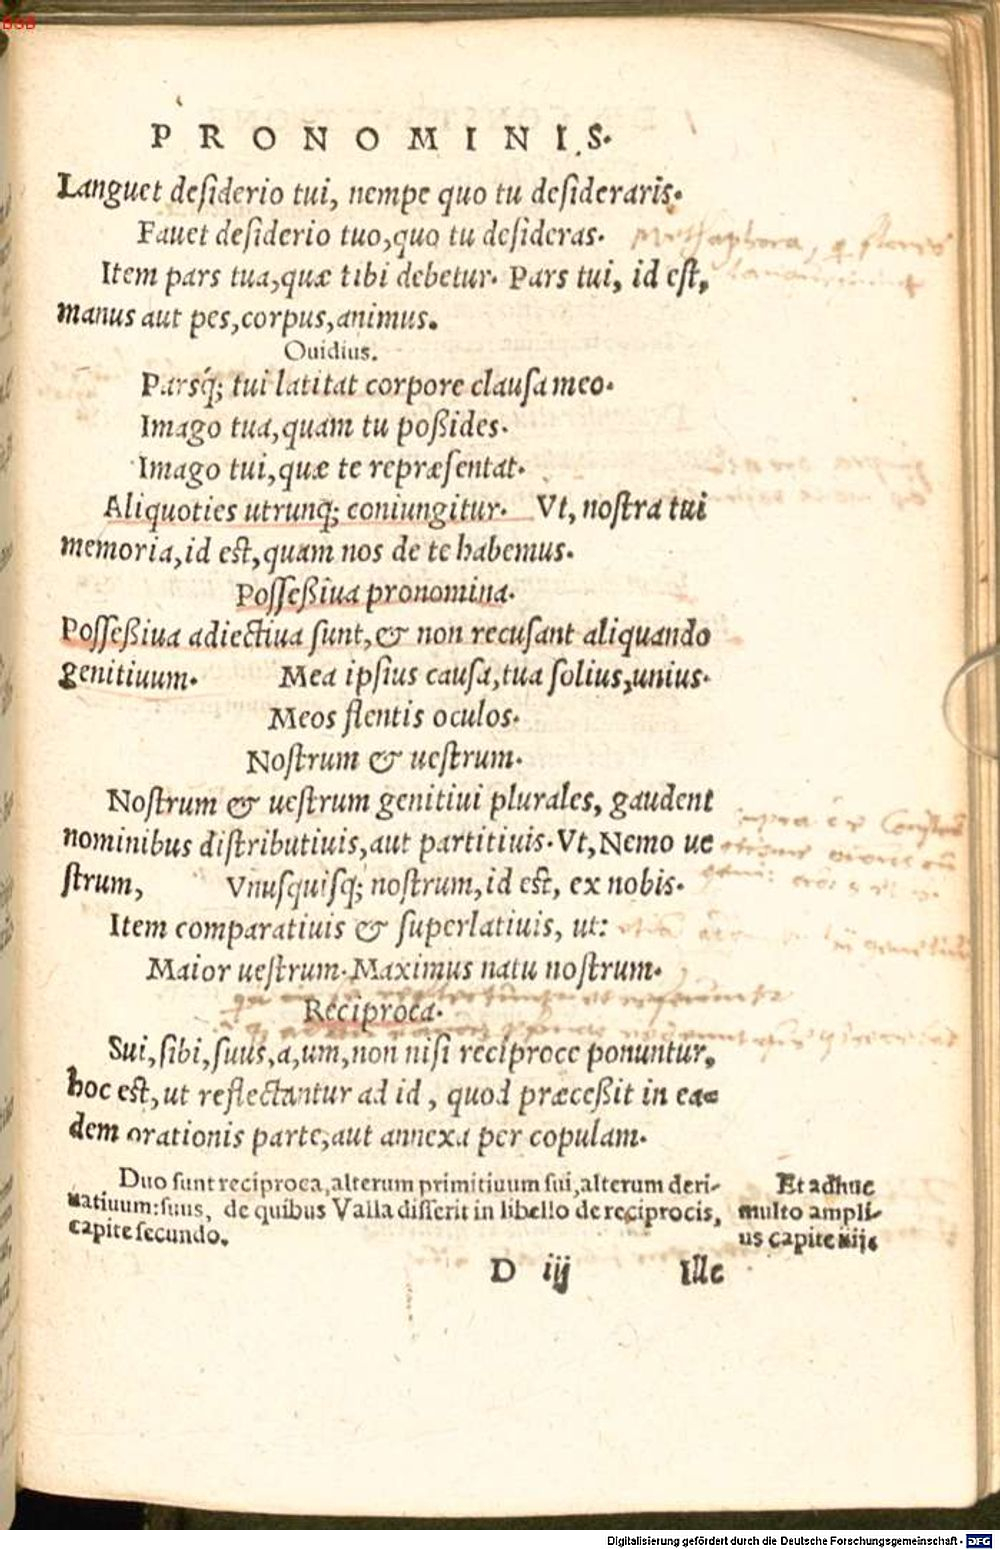 PRONOMINIS.
Languet desiderio tui, nempe quo tu desideraris.
Fauet desiderio tuo, quo tu desideras.
Metaphora,
Item pars tua, quæ tibi debetur. Pars tui, id est,
manus aut pes, corpus, animus.
Ouidius.
Parsq́; tui latitat corpore clausa meo.
Imago tua, quam tu poßides.
Imago tui, quæ te repræsentat.
Aliquoties utrunq; coniungitur. Vt, nostra tui
memoria, id est, quam nos de te habemus.
Posseßiua pronomina.
Posseßiua adiectiua sunt, & non recusant aliquando
genitiuum. Mea ipsius causa, tua solius, unius.
Meos flentis oculos.
Nostrum & uestrum.
Nostrum & uestrum genitiui plurales, gaudent
nominibus distributiuis, aut partitiuis. Vt, Nemo ue
strum, Vnusquisq; nostrum, id est, ex nobis.
Item comparatiuis & superlatiuis, ut:
Maior uestrum. Maximus natu nostrum.
Reciproca.
Sui, sibi, suus, a, um, non nisi reciproce ponuntur,
hoc est, ut reflectantur ad id, quod præceßit in ea-
dem orationis parte, aut annexa per copulam.
Duo sunt reciproca, alterum primitiuum sui, alterum deri-
uatiuum: suus, de quibus Valla disserit in libello de reciprocis,
capite secundo.
Et adhuc
multo ampli-
us capite iiij.
D iij Ille
Digitalisierung gefördert durch die Deutsche Forschungsgemeinschaft - DFG